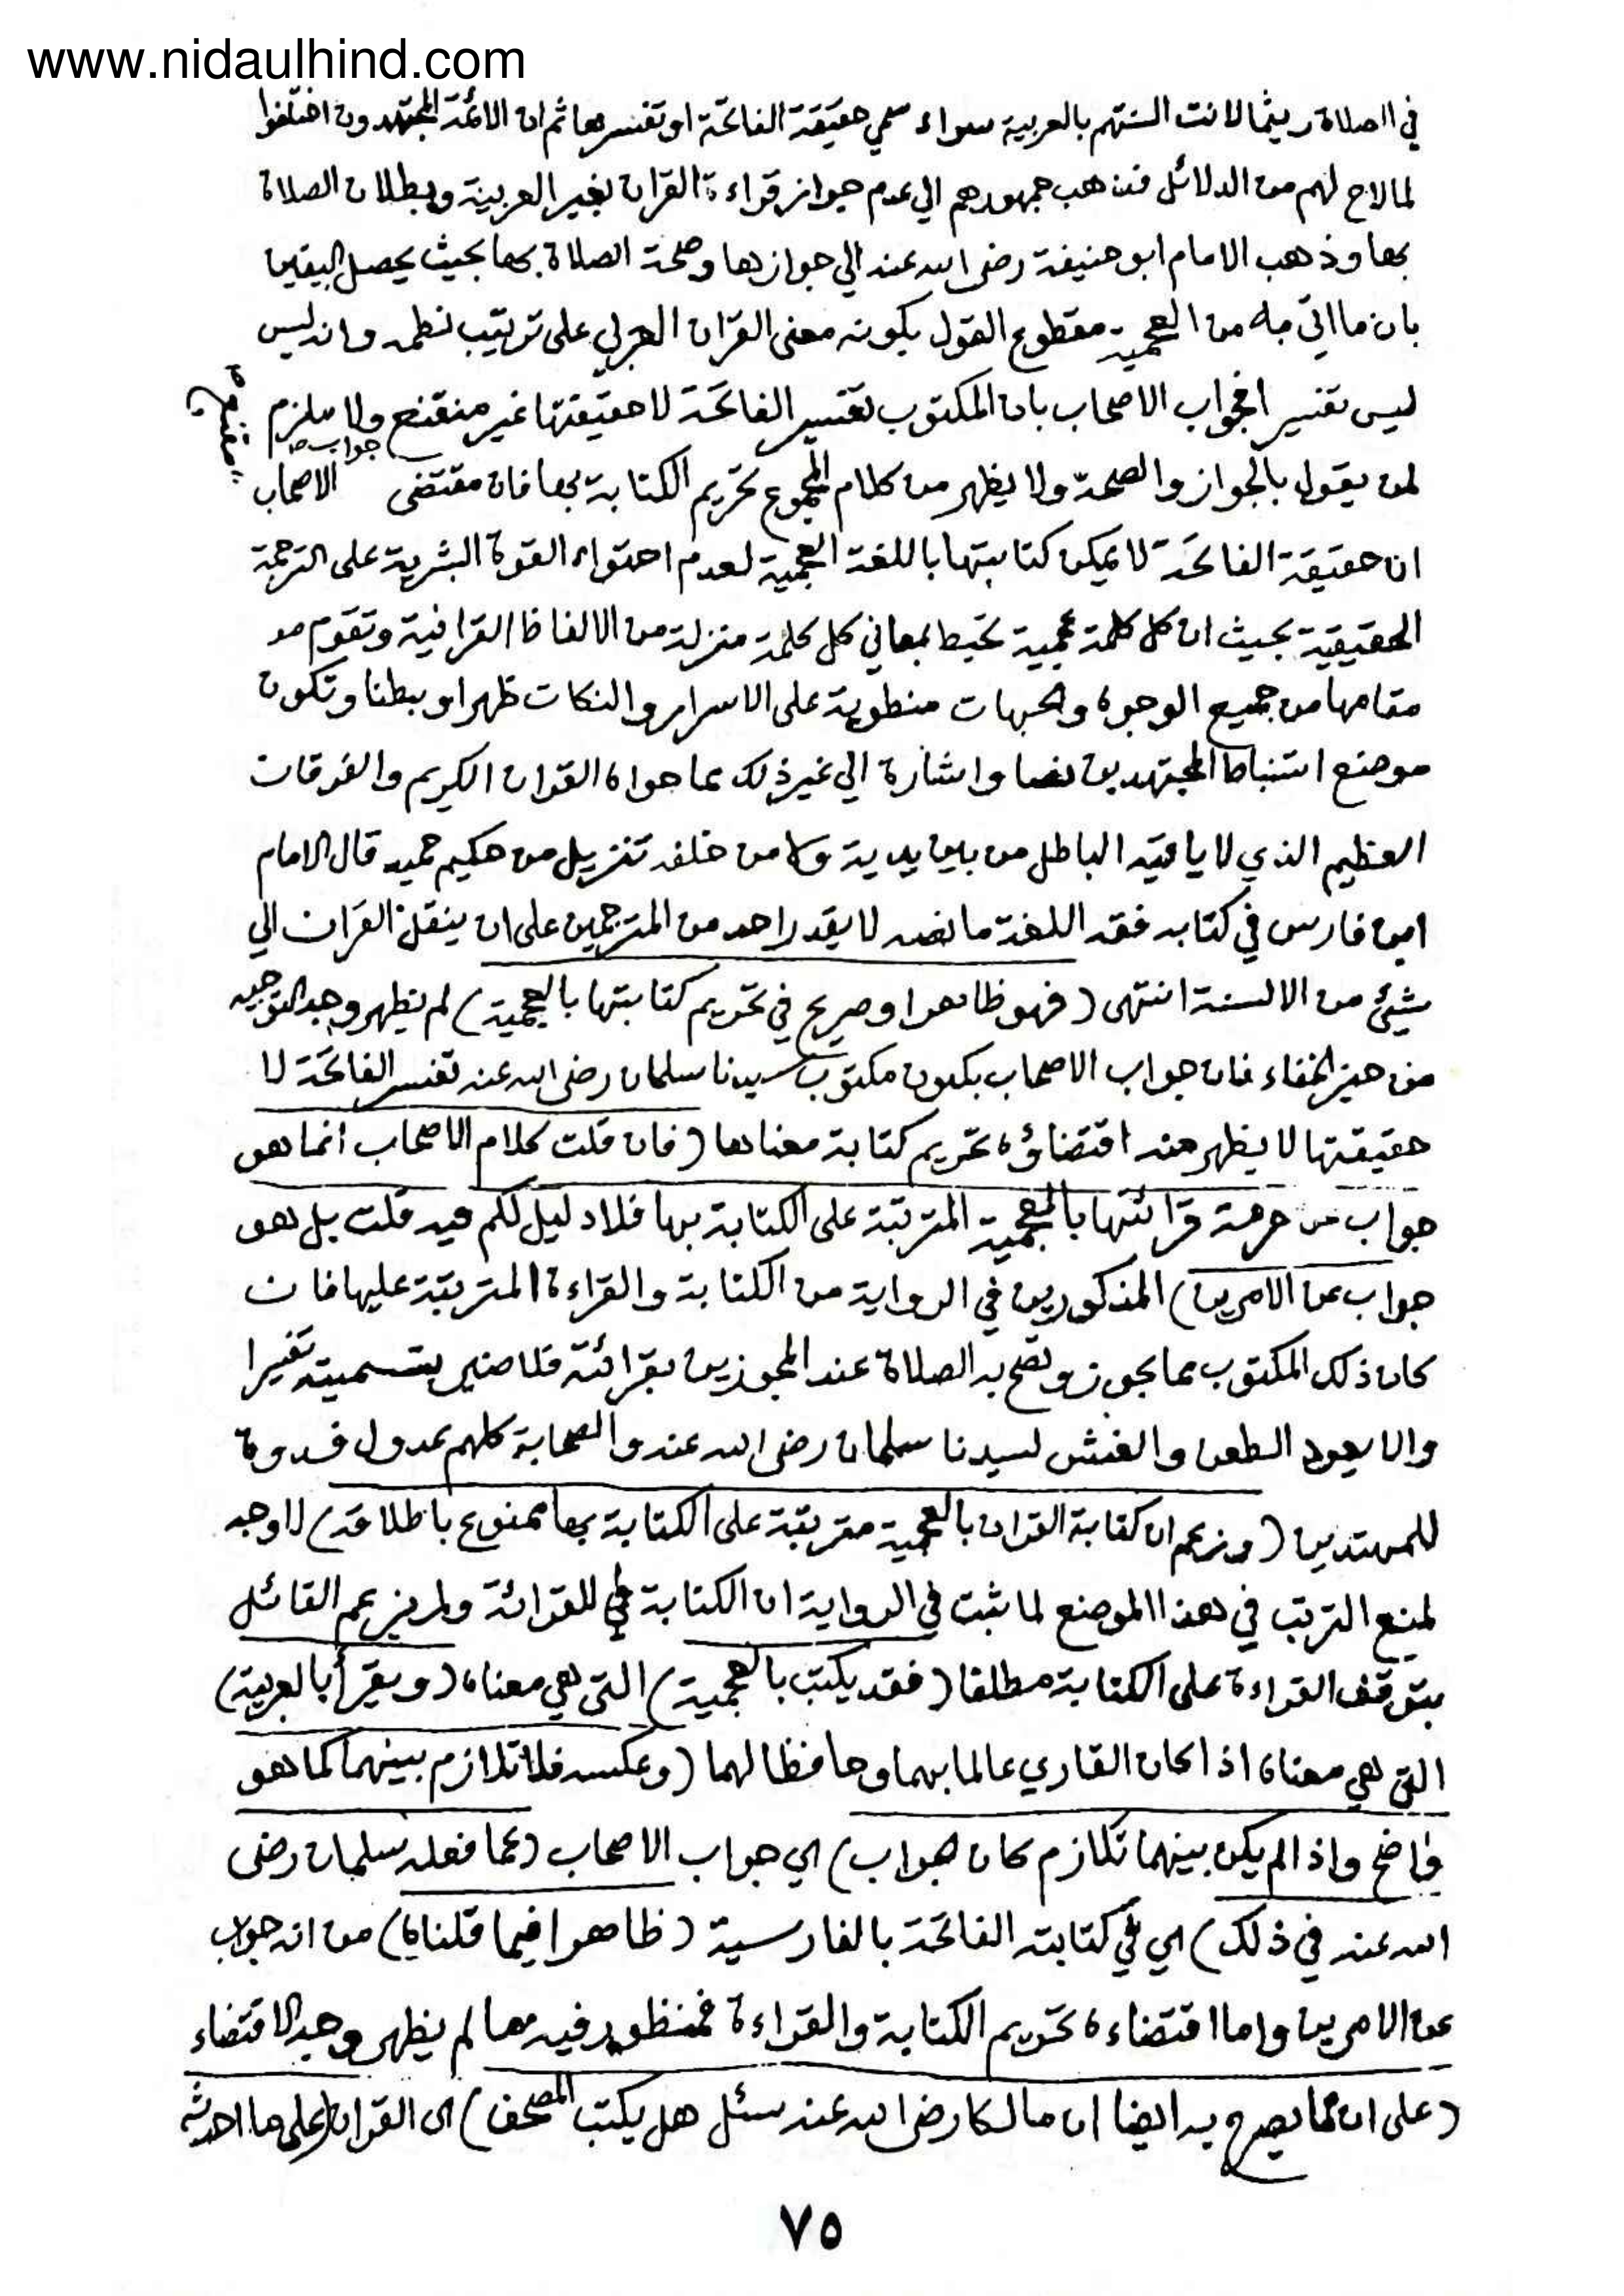 www.nidaulhind.com
في الصلاة ريثما لانت السنتهم بالعربية سواء سمي حقيقة الفاتحة او تفسيرها ثم ان الائمة المجتهدون اختلفوا
لما لاح لهم من الدلائل فذهب جمهورهم الي عدم جواز قراءة القران بغير العربية وبطلان الصلاة
بها وذهب الامام ابو حنيفة رضى الله عنه الي جوازها وصحة الصلاة بها بحيث يحصل اليقين
بان ما اتي به من العجمية مقطوع القول بكونه معنى القران العربي على ترتيب نظمه وانه ليس
ليس تفسير افجواب الاصحاب بان المكتوب تفسير الفاتحة لا حقيقتها غير منقنع ولا ملزم
جواب
لمن يقول بالجواز والصحة ولا يظهر من كلام المجموع تحريم الكتابة بها فان مقتضى الاصحاب
ان حقيقة الفاتحة لا يمكن كتابتها باللغة العجمية لعدم احتواء القوة البشرية على الترجمة
الحقيقية بحيث ان كل كلمة عجمية تحيط بمعاني كل كلمة منزلة من الالفاظ القرانية وتقوم
مقامها من جميع الوجوه والجهات منطوية على الاسرار والنكات ظهرا وبطنا وتكون
موضع استنباط المجتهدين نصا واشارة الي غير ذلك مما حواه القران الكريم والفرقان
العظيم الذي لا ياتيه الباطل من بين يديه ولا من خلفه تنزيل من حكيم حميد قال الامام
ابن فارس في كتابه فقه اللغة ما نصه لا يقدر احد من المترجمين على ان ينقل القران الي
شيئ من الالسنة انتهى (فهو ظاهر او صريح في تحريم كتابتها بالعجمية) لم يظهر وجه التوجيه
من حيز الخفاء فان جواب الاصحاب بكون مكتوب سيدنا سلمان رضى الله عنه تفسير الفاتحة لا
حقيقتها لا يظهر منه اقتضاؤه تحريم كتابة معناها (فان قلت كلام الاصحاب انما هو
جواب عن حرمة قرائتها بالعجمية المترتبة على الكتابة بها فلا دليل لكم فيه قلت بل هو
جواب عن الامرين) المذكورين في الرواية من الكتابة والقراءة المترتبة عليها فان
كان ذلك المكتوب مما يجوز وتصح به الصلاة عند المجوزين بقرائته فلا ضير بتسميته تفسيرا
والا يعود الطعن والغش لسيدنا سلمان رضى الله عنه والصحابة كلهم عدول قدوة
للمهتدين (وزعم ان كتابة القران بالعجمية مترتبة على الكتابة بها ممنوع باطلاقه) لا وجه
لمنع الترتب في هذا الموضع لما ثبت في الرواية ان الكتابة هي للقرائة ولم يزعم القائل
بتوقف القراءة على الكتابة مطلقا (فقد يكتب بالعجمية) التي هي معناه (ويقرأ بالعربية)
التي هي معناه اذا كان القاري عالما بهما وحافظا لهما (وعكسه فلا تلازم بينهما كما هو
واضح واذا لم يكن بينهما تلازم كان جواب) اي جواب الاصحاب (عما فعله سلمان رضى
الله عنه في ذلك) اي في كتابته الفاتحة بالفارسية (ظاهرا فيما قلناه) من انه جواب
عن الامرين واما اقتضاءه تحريم الكتابة والقراءة فمنظور فيه مما لم يظهر وجه الاقتضاء
(على ان مما يصرح به ايضا ان مالكا رضى الله عنه سئل هل يكتب المصحف) اى القران (على ما احدثه
٧٥